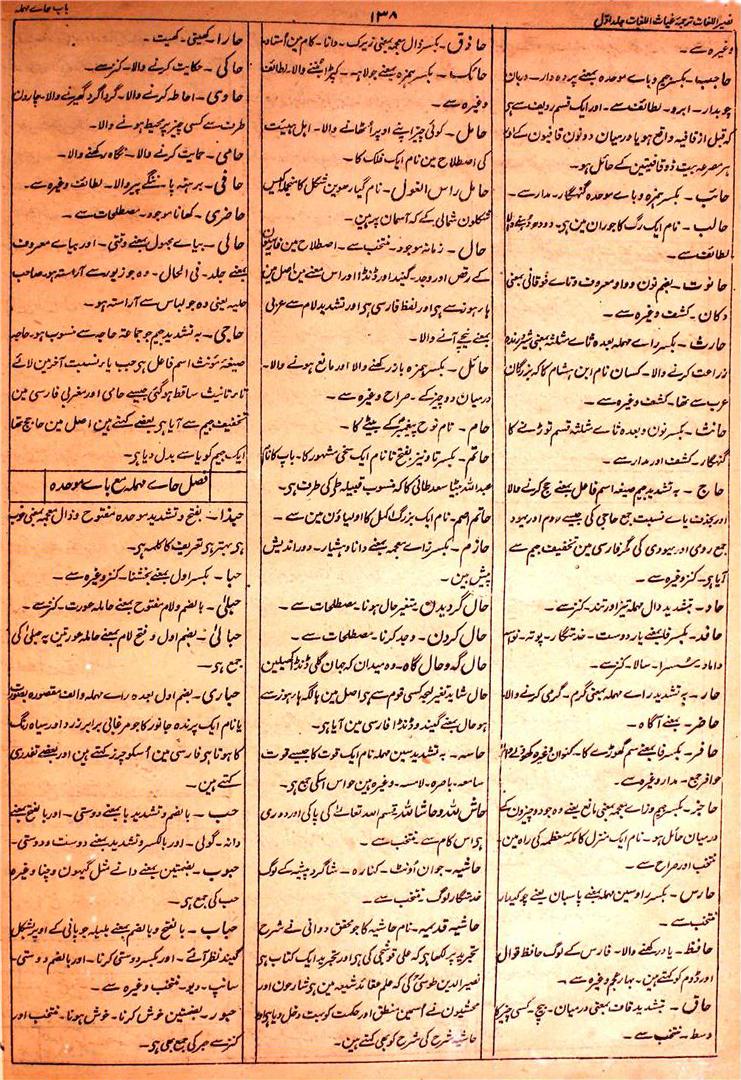 نصیر اللغات ترجمۂ غیاث اللغات جلد اول
۱۳۸
باب حاے مہملہ
وغیرہ سے۔
حاجب۔ بکسر جیم و باے موحدہ بمعنے پردہ دار۔ دربان
چوبدار۔ ابرو۔ لطائف سے۔ اور ایک قسم ردیف سے ہی
کہ قبل از قافیہ واقع ہو یا درمیان دونون قافیون کے اور
ہر مصرعہ بیت ذوقافیتین کے حائل ہو۔
حائب۔ بکسر ہمزہ و باے موحدہ گنہگار۔ مدار سے۔
حالب۔ نام ایک رگ کا جو ران مین ہی۔ دودھ دوہنے والا
لطائف سے۔
حانوت۔ بضم نون و واو معروف و تاے فوقانی بمعنی
دکان۔ کشف وغیرہ سے۔
حارث۔ بکسر راے مہملہ بعدہ ثاے مثلثہ بمعنی شیر درندہ
زراعت کرنے والا۔ کسان نام ابن ہشام کا کہ بزرگان
عرب سے تھا۔ کشف وغیرہ سے۔
حانث۔ بکسر نون و بعدہ ثاے مثلثہ قسم توڑنے کا
گنہگار۔ کشف اور مدار سے۔
حاج۔ بہ تشدید جیم صیغہ اسم فاعل بمعنے حج کرنے والا
اور بحذف یاے نسبت جمع حاجی کی جیسے روم اور یہود
جمع رومی اور یہودی کی مگر فارسی مین تخفیف جیم سے
آیا ہی۔ کنز وغیرہ سے۔
حاد۔ بتشدید دال مہملہ تیز اور تند۔ کنز سے۔
حافد۔ بکسر فا بمعنے یار دوست۔ خدمتگار۔ پوتہ۔ نواسہ
داماد۔ سسرا۔ سالا۔ کنز سے۔
حار۔ بہ تشدید راے مہملہ بمعنی گرم۔ گرمی کرنے والا۔
حاضر۔ بمعنے آگاہ۔
حافر۔ بکسر فا بمعنے سم گھوڑے کا۔ کنوان وغیرہ کھودنے والا
حوافر جمع۔ مدار وغیرہ سے۔
حاجز۔ بکسر جیم و زاے معجمہ بمعنی مانع یعنے وہ جو دو چیزون کے
درمیان حائل ہو۔ نام ایک منزل کا مکہ معظمہ کی راہ مین۔
منتخب اور صراح سے۔
حارس۔ بکسر را و سین مہملہ بمعنے پاسبان یعنے چوکیدار
منتخب سے۔
حافظ۔ یاد رکھنے والا۔ فارس کے لوگ حافظ قوال
اور ڈوم کو کہتے ہین۔ بہار عجم وغیرہ سے۔
حاق۔ بتشدید قاف بمعنی درمیان۔ بیچ۔ کسی چیز کا
وسط۔ منتخب سے۔
حاذق۔ بکسر ذال معجمہ بمعنی زیرک۔ دانا۔ کام مین استاد
حائک۔ بکسر ہمزہ بمعنے جولاہہ۔ کپڑا بننے والا۔ لطائف
وغیرہ سے۔
حامل۔ کوئی چیز اپنے اوپر اٹھانے والا۔ اہل ہیئت
کی اصطلاح مین نام ایک فلک کا۔
حامل راس الغول۔ نام گیارھوین شکل کا منجملہ اکیس
شکلون شمالی کے کہ آسمان پر ہین۔
حال۔ زمانہ موجود۔ منتخب سے۔ اصطلاح مین
کے رقص اور وجد۔ گیند اور ڈنڈا اور اس معنے مین اصل مین
ہار ہوز سے ہی اور لفظ فارسی ہی اور تشدید لام سے عربی
بمعنے نیچے آنے والا۔
حائل۔ بکسر ہمزہ باز رکھنے والا اور مانع ہونے والا۔
درمیان دو چیز کے۔ صراح وغیرہ سے۔
حام۔ نام نوح پیغمبر کے بیٹے کا۔
حاتم۔ بکسر تا و نیز بفتح تا نام ایک سخی مشہور کا۔ باپ کا نام
عبد اللہ بیٹا سعد طائی کا کہ منسوب قبیلہ طی کی طرف ہی۔
حاتم اصم۔ نام ایک بزرگ اکمل کا اولیاؤن مین سے۔
حازم۔ بکسر زاے معجمہ بمعنے دانا و ہشیار۔ دور اندیش
پیش بین۔
حال گردیدن۔ متغیر حال ہونا۔ مصطلحات سے۔
حال کردن۔ وجد کرنا۔ مصطلحات سے۔
حال گہ و حال گاہ۔ وہ میدان کہ جہان گلی ڈنڈا کھیلین
حال شاید تغیر لہجہ کسی قوم سے ہی اصل مین ہالگہ ہار ہوز سے
ہو حال بمعنے گیند و ڈنڈا فارسی مین آیا ہی۔
حاسہ۔ بہ تشدید سین مہملہ نام ایک قوت کا جیسے قوت
سامعہ۔ باصرہ۔ لامسہ۔ وغیرہ مین حواس اسکی جمع ہی۔
حاش للہ و حاشا للہ قسم اللہ تعالیٰ کی پاکی اور دوری
ہی اس کام سے منتخب سے۔
حاشیہ۔ جوان اونٹ۔ کنارہ۔ شاگرد پیشہ کے لوگ
خدمتگار لوگ منتخب سے۔
حاشیہ قدیمہ۔ نام حاشیہ کا جو محقق دوانی نے شرح
تجرید پر لکھا ہی کہ علی قوشجی کی ہی اور تجرید ایک کتاب ہی
نصیر الدین طوسی کی کہ علم عقائد شیعہ مین ہی شارحون اور
محشیون نے اسمین منطق اور حکمت کو بہت دخل دیا ہی
حاشیہ شرح کی شرح کو بھی کہتے ہین۔
حارا۔ کھیتی۔ کھیت۔
حاکی۔ حکایت کرنے والا۔ کنز سے۔
حاوی۔ احاطہ کرنے والا۔ گرداگرد گھیرنے والا۔ چارون
طرف سے کسی چیز پر محیط ہونے والا۔
حامی۔ حمایت کرنے والا۔ نگاہ رکھنے والا۔
حافی۔ برہنہ پا۔ ننگے پیر والا۔ لطائف وغیرہ سے۔
حاضری۔ کھانا موجود۔ مصطلحات سے۔
حالی۔ بیاے مجہول بمعنے وقتی۔ اور بیاے معروف
بمعنے جلد۔ فی الحال۔ وہ جو زیور سے آراستہ ہو۔ صاحب
حلیہ یعنی وہ جو لباس سے آراستہ ہو۔
حاجی۔ بہ تشدید جیم جو جماعۃ حاجہ سے منسوب ہو۔ حاجہ
صیغہ مؤنث اسم فاعل ہی جب یاء نسبت آخر مین لائے
تاء تانیث ساقط ہو گئی جیسے حامی اور مغربی فارسی مین
تخفیف جیم سے آیا ہی بعضے کہتے ہین اصل مین حاجج تھا
ایک جیم کو یا سے بدل دیا ہی۔
فصل حاے مہملہ مع باے موحدہ
حبذا۔ بفتح و تشدید موحدہ مفتوح و ذال معجمہ بمعنی خوب
ہی بہتر ہی تعریف کا کلمہ ہی۔
حبا۔ بکسر اول بمعنے بخشنا۔ کنز وغیرہ سے۔
حبلی۔ بالضم و لام مفتوح بمعنے حاملہ عورت۔ کنز سے۔
حبالی۔ بضم اول و فتح لام بمعنے حاملہ عورتین یہ حبلی کی
جمع ہی۔
حباری۔ بضم اول بعدہ راے مہملہ و الف مقصورہ بصورت
یا نام ایک پرندہ جانور کا جو مرغابی برابر زرد اور سیاہ رنگ
کا ہوتا ہی فارسی مین اسکو چرز کہتے ہین اور بعضے تغدری
کہتے ہین۔
حب۔ بالضم و تشدید با بمعنے دوستی۔ اور بالفتح بمعنے
دانہ۔ گولی۔ اور بالکسر و تشدید بمعنے دوست و دوستی۔
حبوب۔ بضمتین بمعنے دانے مثل گیہون و چنا وغیرہ
حب کی جمع ہی۔
حباب۔ بالفتح و بالضم بمعنے بلبلہ جو پانی کے اوپر بشکل
گیند نظر آئے۔ اور بکسر دوستی کرنا۔ اور بالضم دوستی۔
سانپ۔ دیو۔ منتخب وغیرہ سے۔
حبور۔ بضمتین خوش کرنا۔ خوش ہونا۔ منتخب اور
کنز سے حبر کی جمع بھی ہی۔